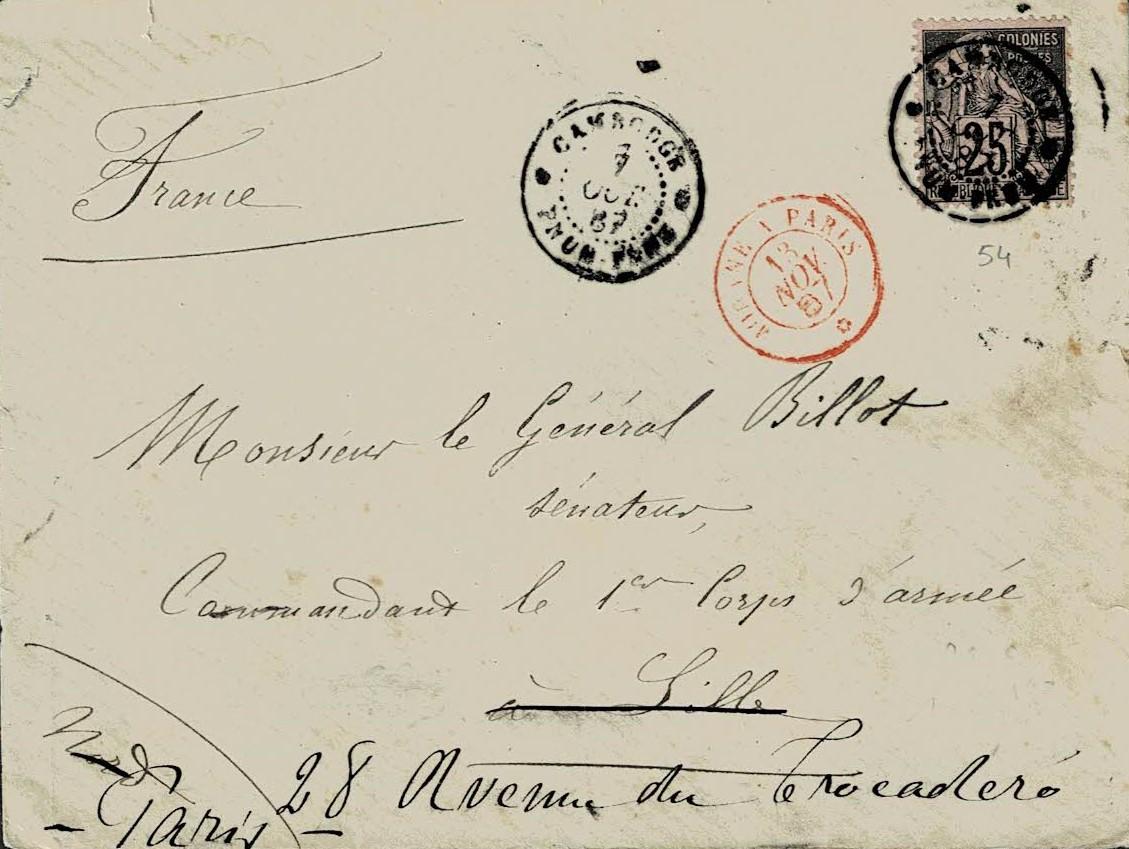 COLONIES
POSTES
25
CAMBODGE
7
OCT
87
PNUM-PENH
CAMBODGE
PNUM-PENH
A PARIS
13
NOV
87
54
France
Monsieur le Général Billot
sénateur,
Commandant le 1er Corps d'armée
à Lille
Nord
28 Avenue du Trocadéro
- Paris -